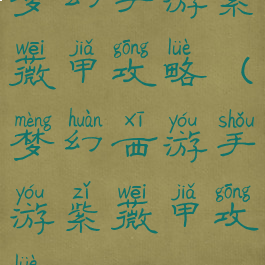 梦幻手游紫
wēi jiǎ gōng lüè
薇甲攻略（
mèng huàn xī yóu shǒu
梦幻西游手
yóu zǐ wēi jiǎ gōng
游紫薇甲攻
lüè